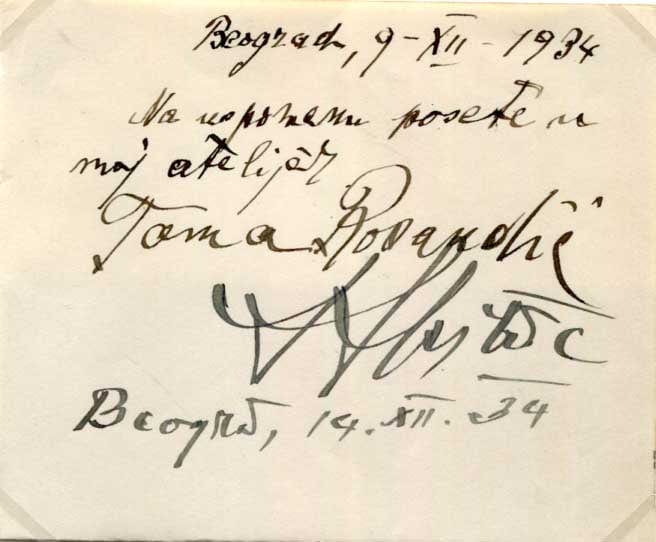 Beograd, 9-XII-1934
Na uspomenu posete u
moj atelijer
Toma Rosandić
Beograd, 14.XII.34